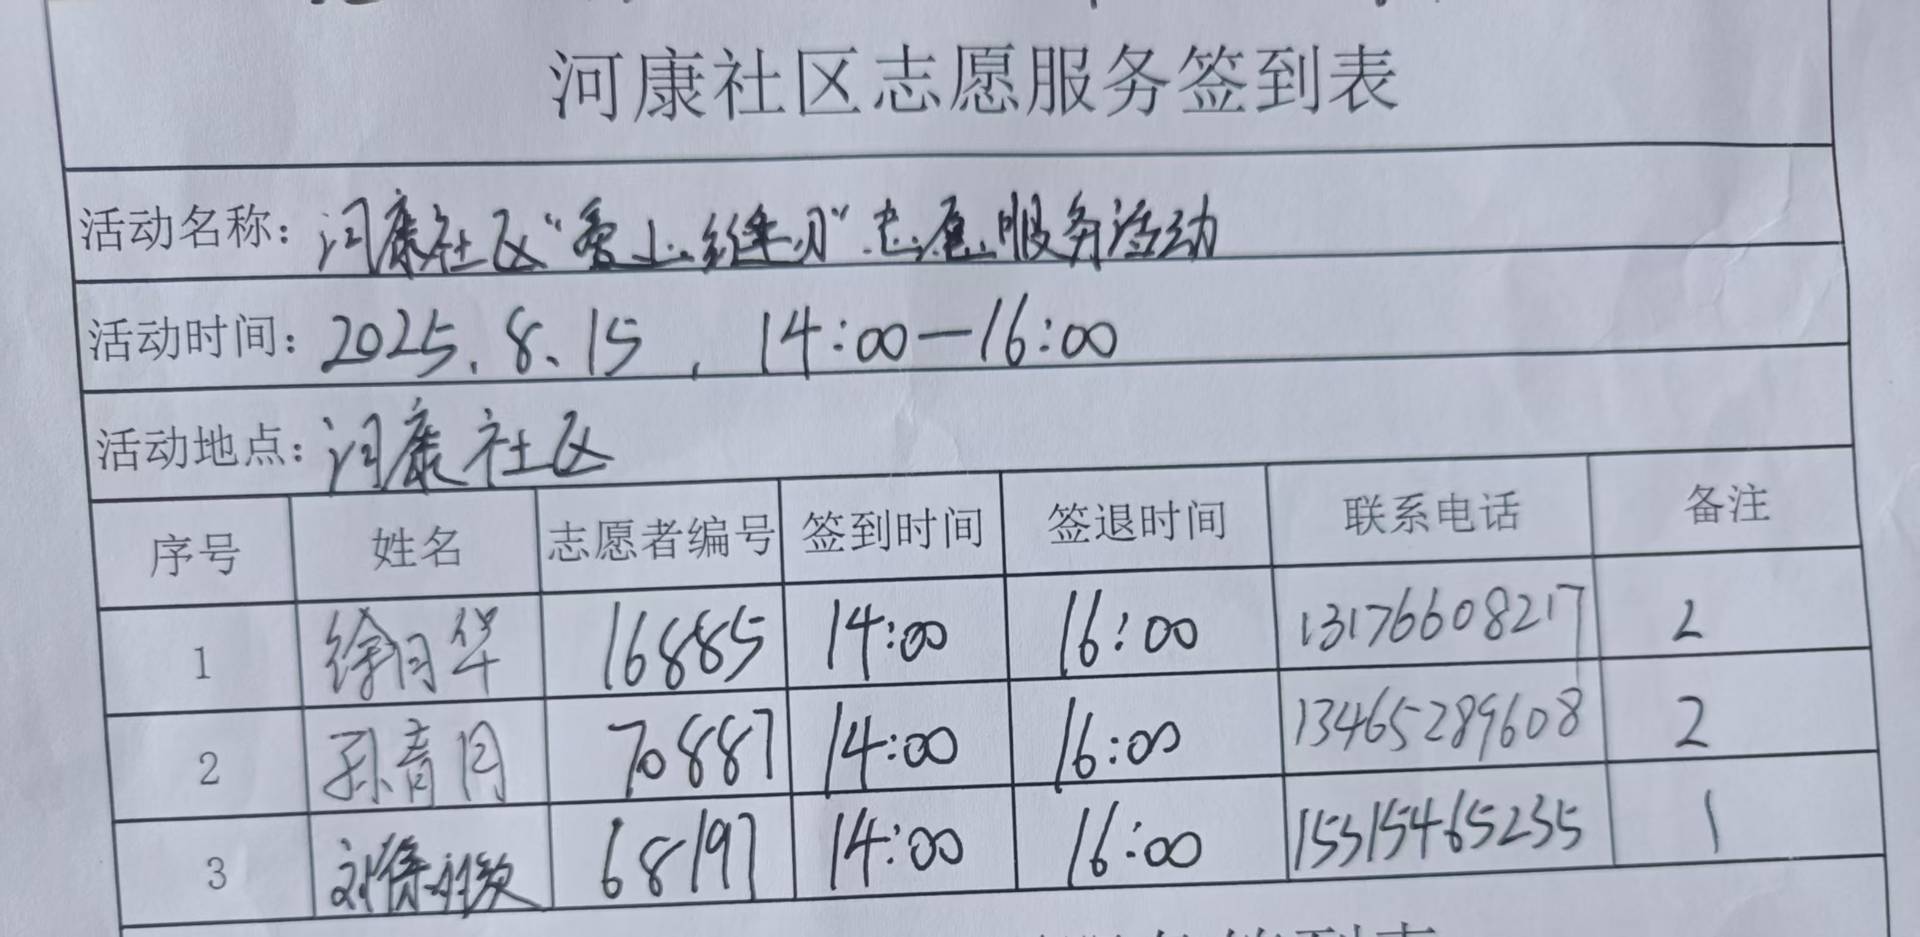 河康社区志愿服务签到表
活动名称: 河康社区"爱上缝刃"志愿服务活动
活动时间: 2025.8.15, 14:00—16:00
活动地点: 河康社区
序号 姓名 志愿者编号 签到时间 签退时间 联系电话 备注
1 徐月华 16885 14:00 16:00 13176608217 2
2 孙育同 70887 14:00 16:00 13465289608 2
3 刘 68197 14:00 16:00 15315465235 1